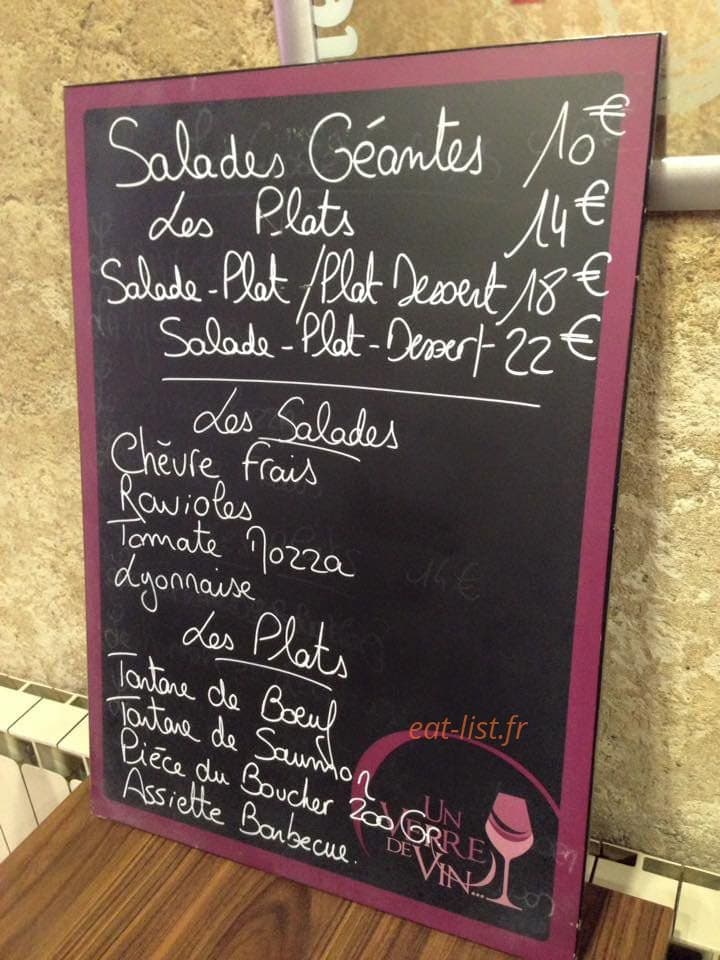 Salades Géantes 10€
Les Plats 14€
Salade-Plat/Plat Dessert 18€
Salade-Plat-Dessert 22€
Les Salades
Chèvre Frais
Ravioles
Tomate Mozza
Lyonnaise
Les Plats
Tartare de Boeuf
Tartare de Saumon
Pièce du Boucher 200 Gr
Assiette Barbecue.
eat-list.fr
UN
VERRE
DE VIN...